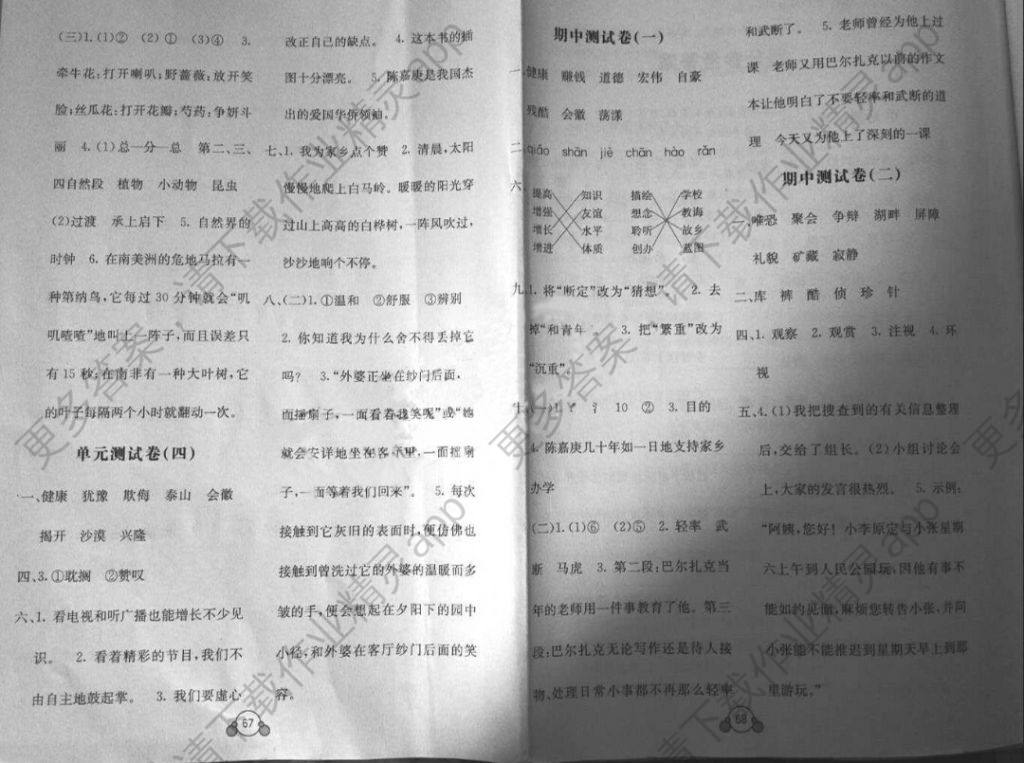 (三)1.(1)② (2)① (3)④ 3.
牵牛花;打开喇叭;野蔷薇;放开笑
脸;丝瓜花;打开花瓣;芍药;争妍斗
丽 4.(1)总—分—总 第二、三、
四自然段 植物 小动物 昆虫
(2)过渡 承上启下 5. 自然界的
时钟 6. 在南美洲的危地马拉有一
种第纳鸟,它每过30分钟就会“叽
叽喳喳”地叫上一阵子,而且误差只
有15秒;在南非有一种大叶树,它
的叶子每隔两个小时就翻动一次。
单元测试卷(四)
一、健康 犹豫 欺侮 泰山 会徽
揭开 沙漠 兴隆
四、3.①耽搁 ②赞叹
六、1. 看电视和听广播也能增长不少见
识。 2. 看着精彩的节目,我们不
由自主地鼓起掌。 3. 我们要虚心
67
改正自己的缺点。 4. 这本书的插
图十分漂亮。 5. 陈嘉庚是我国杰
出的爱国华侨领袖。
七、1. 我为家乡点个赞 2. 清晨,太阳
慢慢地爬上白马岭。暖暖的阳光穿
过山上高高的白桦树,一阵风吹过,
沙沙地响个不停。
八、(二)1.①温和 ②舒服 ③辨别
2. 你知道我为什么舍不得丢掉它
吗? 3.“外婆正坐在纱门后面,
而摇扇子,一面看着我笑呢”或“她
就会安详地坐在客厅里,一面摇扇
子,一面等着我们回来”。 5. 每次
接触到它灰旧的表面时,便仿佛也
接触到曾洗过它的外婆的温暖而多
皱的手,便会想起在夕阳下的园中
小径,和外婆在客厅纱门后面的笑
容。
期中测试卷(一)
一、健康 赚钱 道德 宏伟 自豪
残酷 会徽 荡漾
二、qiáo shān jiè chān hào rǎn
六、提高 知识 描绘 学校
增强 友谊 想念 教诲
增长 水平 聆听 故乡
增进 体质 创办 蓝图
九、1. 将“断定”改为“猜想”。 2. 去
掉“和青年” 3. 把“繁重”改为
“沉重”。
十、(一)1. Y 氵 10 ② 3. 目的
4. 陈嘉庚几十年如一日地支持家乡
办学
(二)1.(1)⑥ (2)⑤ 2. 轻率 武
断 马虎 3. 第二段:巴尔扎克当
年的老师用一件事教育了他。第三
段:巴尔扎克无论写作还是待人接
物、处理日常小事都不再那么轻率
68
和武断了。 5. 老师曾经为他上过
课 老师又用巴尔扎克以前的作文
本让他明白了不要轻率和武断的道
理 今天又为他上了深刻的一课
期中测试卷(二)
一、唯恐 聚会 争辩 湖畔 屏障
礼貌 矿藏 寂静
二、库 裤 酷 侦 珍 针
四、1. 观察 2. 观赏 3. 注视 4. 环
视
五、4.(1)我把搜查到的有关信息整理
后,交给了组长。 (2)小组讨论会
上,大家的发言很热烈。 5. 示例:
“阿姨,您好! 小李原定与小张星期
六上午到人民公园玩,因他有事不
能如约见面,麻烦您转告小张,并问
小张能不能推迟到星期天早上到那
里游玩。”
更多答案,请下载作业精灵app
更多答案,请下载作业精灵app
请下载作业精灵app
请下载作业精灵app
更多答